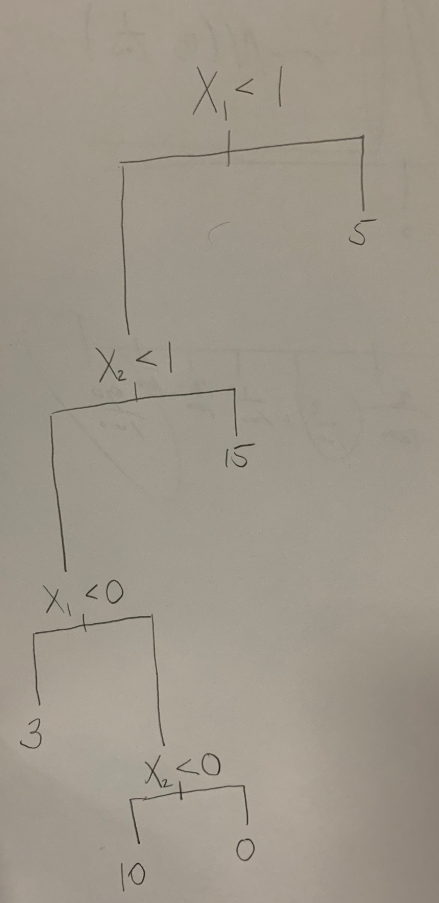 X₁ < 1
5
X₂ < 1
15
X₁ < 0
3
X₂ < 0
10
0